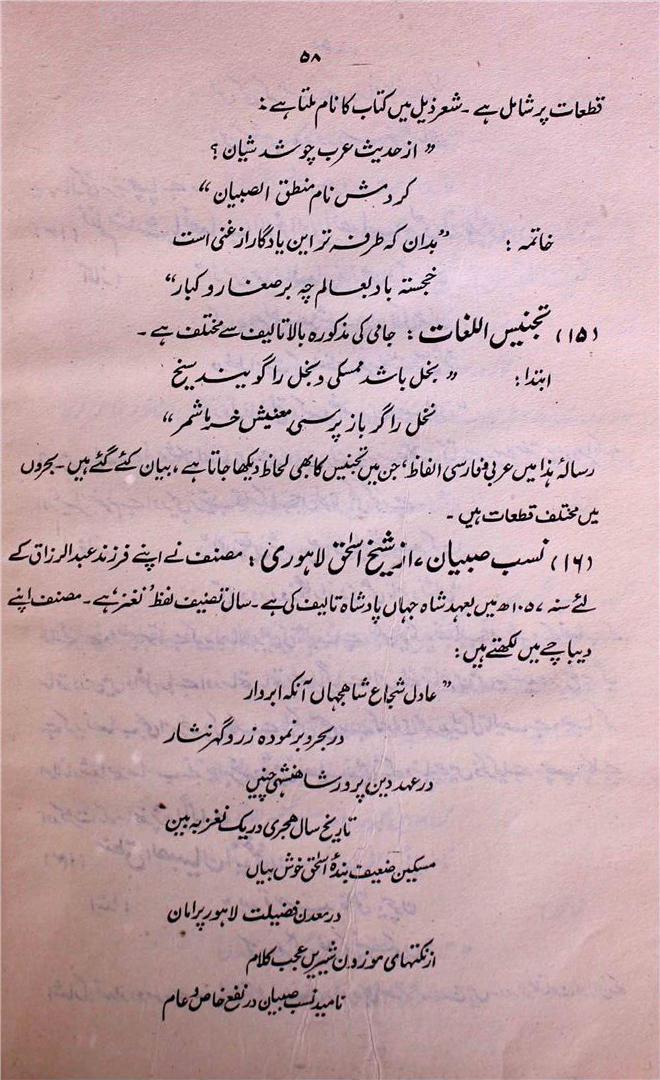 ۵۸
قطعات پر شامل ہے ۔ شعر ذیل میں کتاب کا نام ملتا ہے :
" از حدیث عرب چو شد شیان ؟
کردمش نام منطق الصبیان "
خاتمہ : " بدان کہ طرفہ تر این یادگار از غنی است
خجستہ باد بعالم چہ بر صغار و کبار "
(۱۵) تجنیس اللغات : جامی کی مذکورہ بالا تالیف سے مختلف ہے ۔
ابتدا : " بخل باشد ممسکی دبخل را گویند سیخ
نخل را گر باز پرسی معنیش خرما شمر "
رسالۂ ہذا میں عربی و فارسی الفاظ ، جن میں تجنیس کا بھی لحاظ دیکھا جاتا ہے ، بیان کئے گئے ہیں ۔ بحروں
میں مختلف قطعات ہیں ۔
(۱۶) نسب صبیان ، از شیخ اسحٰق لاہوری : مصنف نے اپنے فرزند عبد الرزاق کے
لئے سنہ ۱۰۵۷ھ میں بعہد شاہ جہاں پادشاہ تالیف کی ہے ۔ سال تصنیف لفظ 'نغز' ہے ۔ مصنف اپنے
دیباچے میں لکھتے ہیں :
" عادل شجاع شاہجہاں آنکہ ابردار
در بحر و بر نمودہ زر و گہر نثار
در عہد دین پرور شاہنشہی چنیں
تاریخ سال ہجری در یک نغز بہ بین
مسکین ضعیف بندۂ اسحٰق خوش بیاں
در معدن فضیلت لاہور پر امان
از نکتہای موزون شیریں عجب کلام
نامید نسب صبیان در نفع خاص و عام